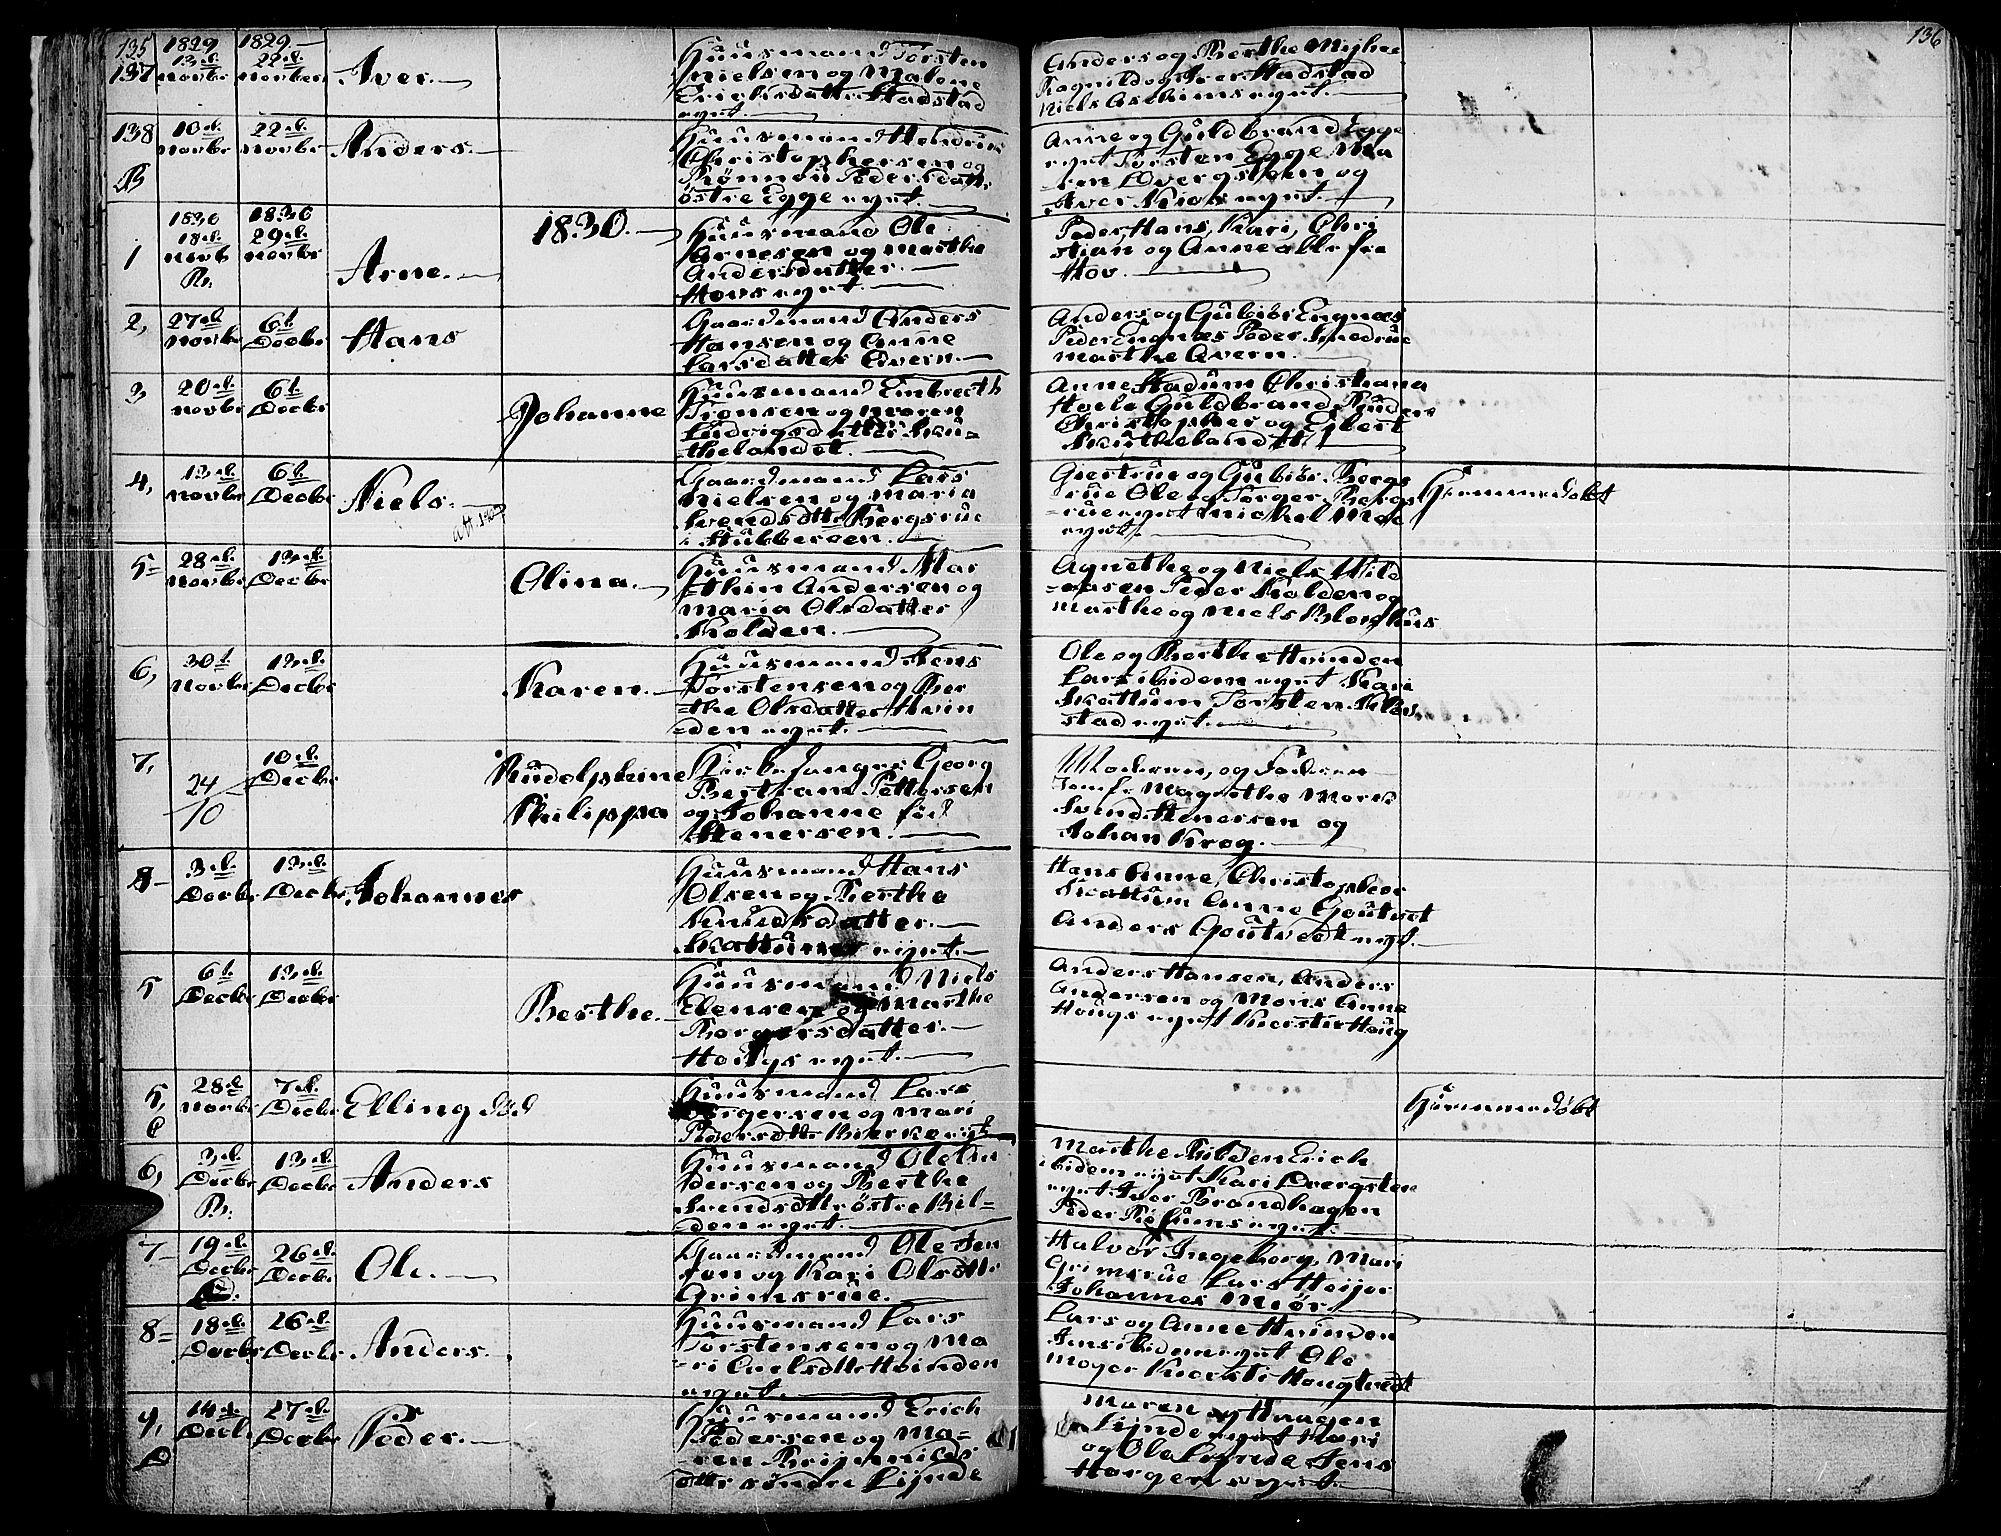 135
136
137
1829
13de
Novbr
1829
22de
Novbr
Iver.
Huusmand Torsten
Nielsen og Malene
Erichsdatter Hadstad
eyet.
Anders og Berthe Mijhre
Ragnild og Iver Hadstad
Niels Aschims eyet.
138
B
10de
Novbr
22de
Novbr
Anders.
Huusmand Hendrik
Christophersen og
Rønnou Pedersdatter
østre Egge eyet.
Anne og Guldbrand Egge
eyet Torsten Egge Ma
ren Dvergsteen og
Iver Kiøs eyet.
1
1830
18de
Novb
B.
1830
29de
Novbr
Arne.
1830.
Huusmand Ole
Arnesen og Marthe
Andersdatter
Hovs eyet.
Peder, Hans, Kari, Chri
stian og Anne alle fra
Hov.
2,
27de
Novbr
6t
Decbr
Hans
Gaardmand Anders
Hansen og Anne
Larsdatter Qvern.
Anders og Gubiør Engnæs
Peder Engnæs Peder Smedrue
Marthe Qvern.
3
20de
Novbr
6t
Decbr
Johanne
Huusmand Embrecth
Tronsen og Maren
Ludvigsdatter
thelandet.
Anne Hadum Christiana
Hoele Guldbrand Ruder
Christopher og Egbert
4,
13de
Novbr
6t
Decbr
Niels.
Gaardmand Lars
Nielsen og Maria
Svendsdttr Bergsrue
i Hubbergen.
Giertrue og Gubiør Bergs
rue Ole og Torger Bergs
rue eyet Michel Moe
eyet.
Hjemmedøbt
5
28de
Novbr
13de
Decbr
Olina.
Huusmand Mar
thin Andersen og
Maria Olsdatter
Kolden.
Agnethe og Niels Wild
aasen Peder Kolden og
Marthe og Niels Bleghus
6,
30t
Novbr
13de
Decbr
Karen.
Huusmand Jens
Torstensen og Ber
the Olsdatter Hvin
den eyet.
Ole og Berthe Hvinden
Lars ibidem eyet Kari
Skattum Torsten
stad eyet.
7,
24
10
10de
Decbr
Rudolphine
Philippa
Kirkesanger Georg
Bertram Pettersen
og Johanne fød
Stenersen.
Moderen, og Faderen
Jomf. Magrethe Mork
Svend Stenersen og
Johan Krog.
8
3de
Decbr
13de
Decbr
Johannes
Huusmand Hans
Olsen og Berthe
Knudsdatter
Skattums eyet.
Hans Anne, Christopher
Skattum Anne Goutvet
Anders Goutvedt eyt.
5
6t
Decbr
13de
Decbr
Berthe.
Huusmand Niels
Elensen og Marthe
Borgersdatter
Hougs eyet.
Anders Hansen, Anders
Andersen og Mons Anne
Hougs eyet Kiersti Houg
5,
C
28de
Novbr
7de
Decbr
Elling død
Huusmand Lars
Borgersen og Mari
Pedersdttr Bierke eyet
Hiemmedøbt
6,
3de
Decbr
B.
13de
Decbr
Anders
Huusmand Ole An
dersen og Berthe
Svendsdttr østre Bil
den eyet.
Marthe Bilden Erich
ibidem eyet Kari Dvergsten
eyet Iver Brandhagen
Peder eyet.
7
19de
Decbr
26de
Decbr
Ole.
Gaardmand Ole Jen
sen og Kari Olsdttr
Grimsrue.
Halvor Ingeborg, Mari
Grimsrue Lars Heijer
Johannes Miør
8
18de
Decbr
26de
Decbr
Anders.
Huusmand Lars
Torstensen og Ma
ri Carlsdttr Hvinden
eyet.
Lars og Anne Hvinden
Jens ibidem eyet Ole
Moger Kiersti Hougtvedt
9,
D
14de
Decbr
27de
Decbr
Peder.
Huusmand Erich
Pedersen og Ma
ren Brijnnilds
dttr søndre Lijnde
Maren og Haagen
Lijnde eyet Mari
og Ole Lijnde Jens
Horgens eyet.